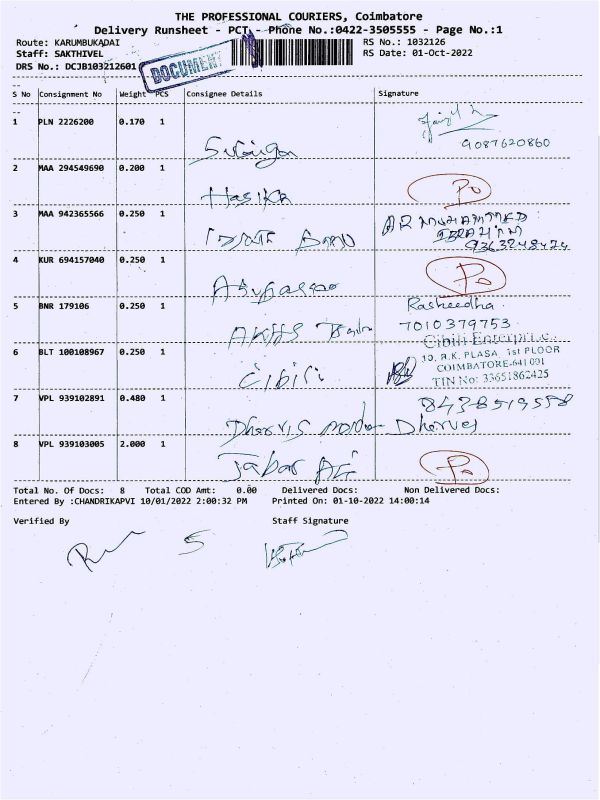 THE PROFESSIONAL COURIERS, Coimbatore
Delivery Runsheet - PCT - Phone No.:0422-3505555 - Page No.:1
Route: KARUMBUKADAI RS No.: 1032126
Staff: SAKTHIVEL RS Date: 01-Oct-2022
DRS No.: DCJB103212601 DOCUMENT
S No Consignment No Weight PCS Consignee Details Signature
1 PLN 2226200 0.170 1
9087620860
2 MAA 294549690 0.200 1
Hasika Po
3 MAA 942365566 0.250 1
Banu AR MUHAMMED
IBRAHIM
9363248474
4 KUR 694157040 0.250 1
Po
5 BNR 179106 0.250 1 Rasheedha.
7010379753
6 BLT 100108967 0.250 1 Cibili Enterprise.
10, R.K. PLASA, 1st FLOOR
COIMBATORE-641 001
TIN No: 33651862425
Cibili
7 VPL 939102891 0.480 1 8438519558
8 VPL 939103005 2.000 1
Jabar Ali Po
Total No. Of Docs: 8 Total COD Amt: 0.00 Delivered Docs: Non Delivered Docs:
Entered By :CHANDRIKAPVI 10/01/2022 2:00:32 PM Printed On: 01-10-2022 14:00:14
Verified By Staff Signature
5